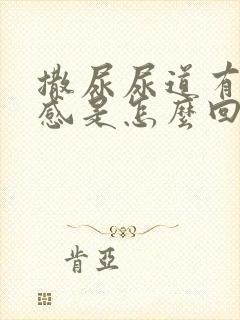 撒尿尿道有
感是怎麼回
肯亞